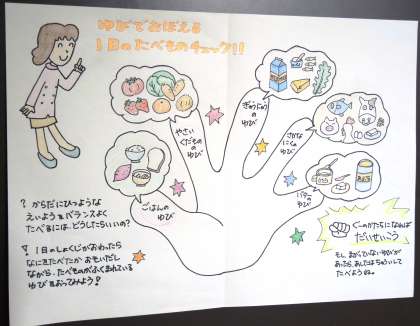 ゆびでおぼえる
1日のたべものチェック!!
やさい
くだものの
ゆび
ぎゅうにゅうの
ゆび
さかな
にくの
ゆび
ごはんの
ゆび
バターの
ゆび
? からだにひつような
えいようをバランスよく
たべるには、どうしたらいいの?
! 1日のしょくじがおわったら
なにをたべたか おもいだし
ながら、たべものがふくまれている
ゆびをおってみよう!
ぐーのかたちになれば
だいせいこう
もし、まがっていないゆびが
あったら、あしたはちゅういして
たべようね。